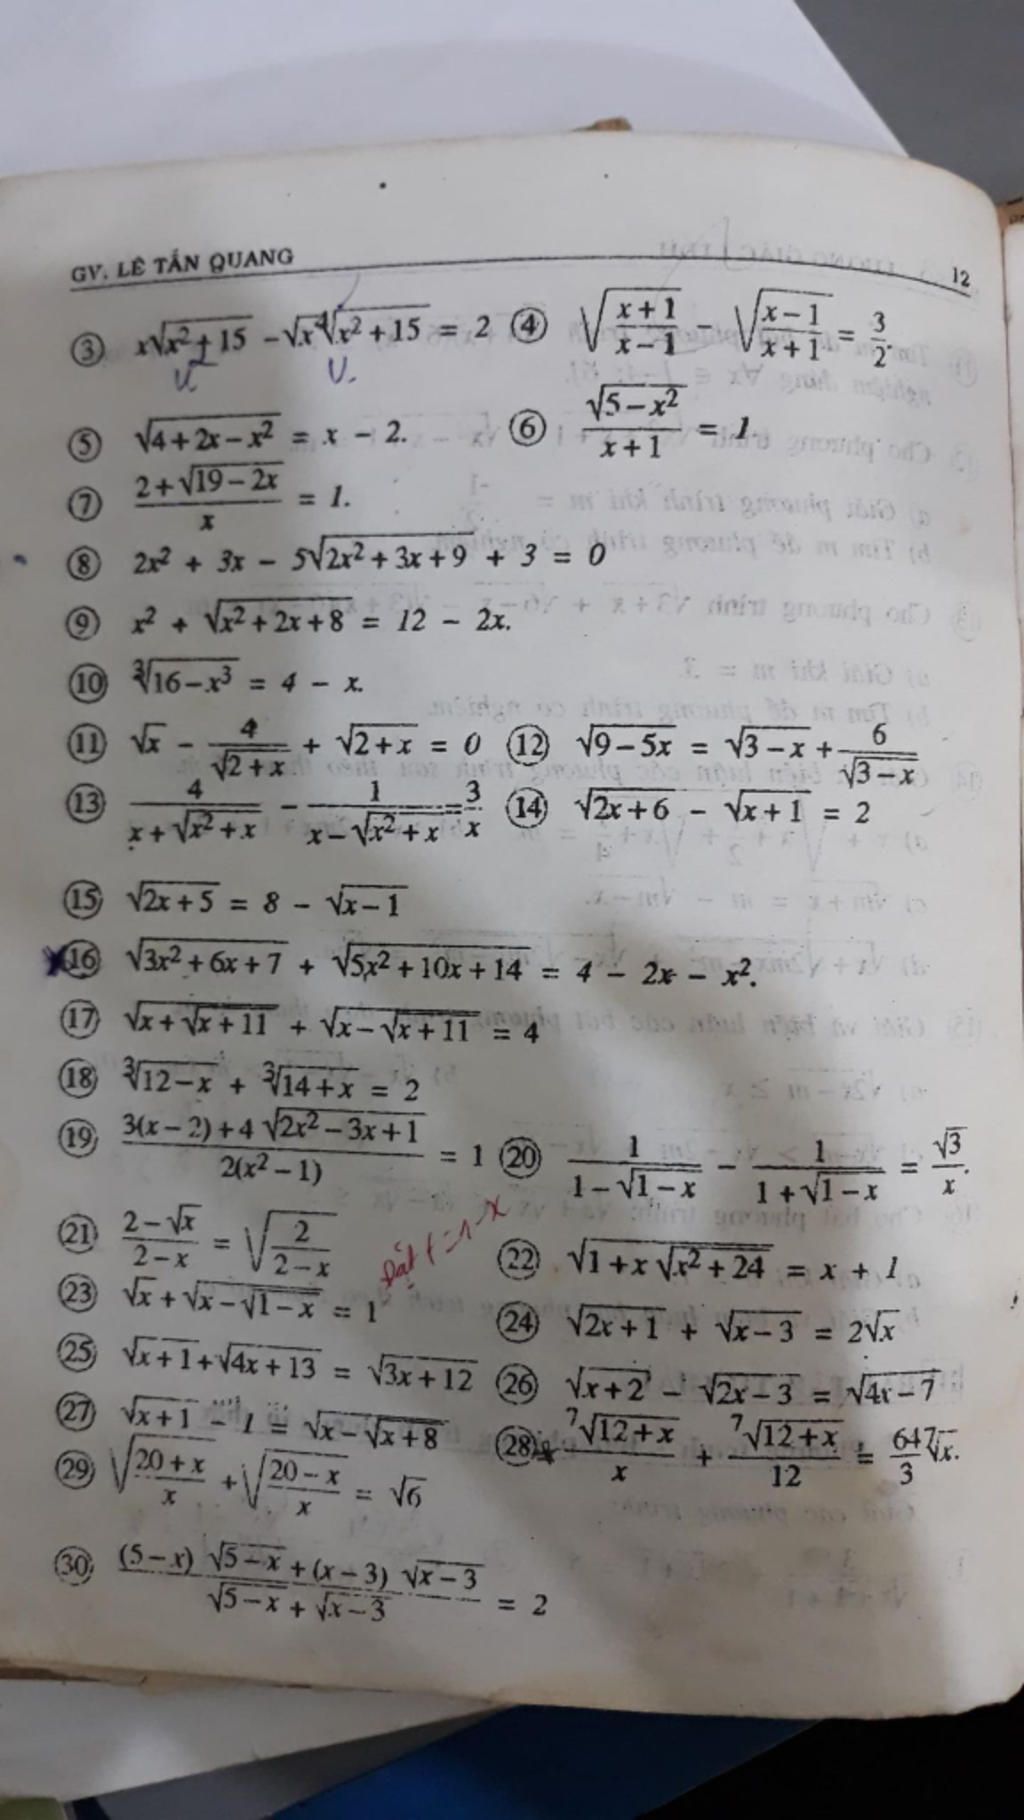 GV. LÊ TẤN QUANG 12
③ x√(x² + 15) − √x ⁴√(x² + 15) = 2 ④ √((x + 1)/(x − 1)) − √((x − 1)/(x + 1)) = 3/2.
u² u.
⑤ √(4 + 2x − x²) = x − 2. ⑥ √(5 − x²)/(x + 1) = 1
⑦ (2 + √(19 − 2x))/x = 1.
⑧ 2x² + 3x − 5√(2x² + 3x + 9) + 3 = 0
⑨ x² + √(x² + 2x + 8) = 12 − 2x.
⑩ ³√(16 − x³) = 4 − x.
⑪ √x − 4/√(2 + x) + √(2 + x) = 0 ⑫ √(9 − 5x) = √(3 − x) + 6/√(3 − x)
⑬ 4/(x + √(x² + x)) − 1/(x − √(x² + x)) = 3/x ⑭ √(2x + 6) − √(x + 1) = 2
⑮ √(2x + 5) = 8 − √(x − 1)
⑯ √(3x² + 6x + 7) + √(5x² + 10x + 14) = 4 − 2x − x².
⑰ √(x + √(x + 11)) + √(x − √(x + 11)) = 4
⑱ ³√(12 − x) + ³√(14 + x) = 2
⑲ (3(x − 2) + 4√(2x² − 3x + 1))/(2(x² − 1)) = 1 ⑳ 1/(1 − √(1 − x)) − 1/(1 + √(1 − x)) = √3/x.
㉑ (2 − √x)/(2 − x) = √(2/(2 − x)) Đặt t = 1 − x ㉒ √(1 + x√(x² + 24)) = x + 1
㉓ √x + √(x − √(1 − x)) = 1 ㉔ √(2x + 1) + √(x − 3) = 2√x
㉕ √(x + 1) + √(4x + 13) = √(3x + 12) ㉖ √(x + 2) − √(2x − 3) = √(4x − 7)
㉗ √(x + 1) − 1 = √(x − √(x + 8)) ㉘ ⁷√(12 + x)/x + ⁷√(12 + x)/12 = 64/3 ⁷√x.
㉙ √((20 + x)/x) + √((20 − x)/x) = √6
㉚ ((5 − x)√(5 − x) + (x − 3)√(x − 3))/(√(5 − x) + √(x − 3)) = 2